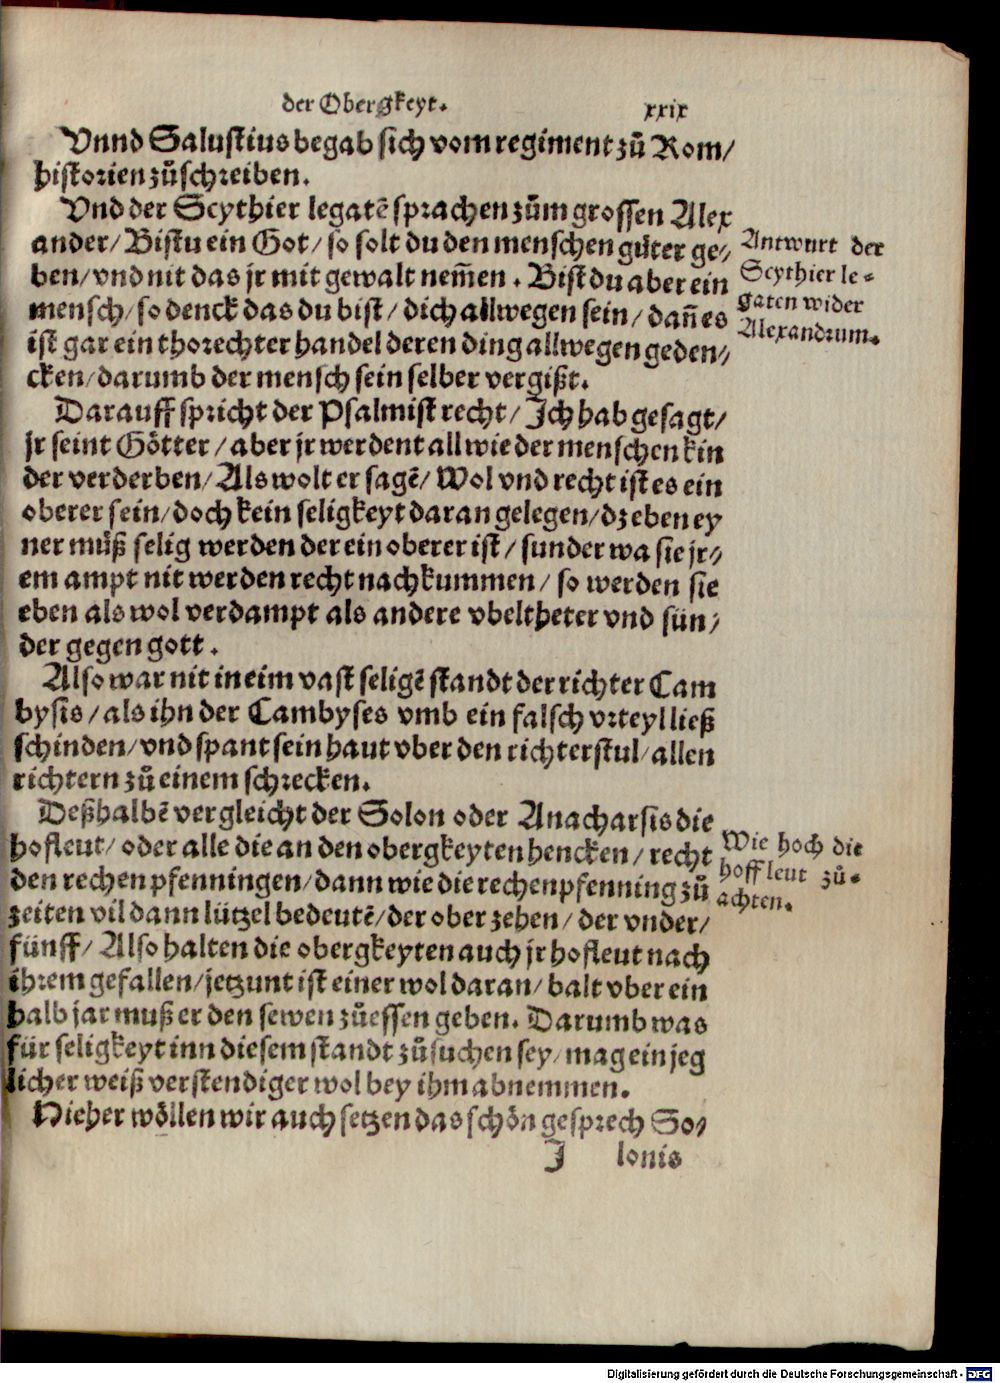 der Obergkeyt.
xxix
Vnnd Salustius begab sich vom regiment zů Rom/
historien zůschreiben.
Vnd der Scythier legatē sprachen zům grossen Alex
ander/ Bistu ein Got/ so solt du den menschen gůter ge/
ben/ vnd nit das jr mit gewalt nem̄en. Bist du aber ein
mensch/ so denck das du bist/ dich allwegen sein/ dan̄ es
ist gar ein thorechter handel deren ding allwegen geden/
cken/ darumb der mensch sein selber vergißt.
Antwurt der
Scythier le-
gaten wider
Alexandrum.
Darauff spricht der Psalmist recht/ Ich hab gesagt/
jr seint Götter/ aber jr werdent all wie der menschen kin
der verderben/ Als wolt er sagē/ Wol vnd recht ist es ein
oberer sein/ doch kein seligkeyt daran gelegen/ dz eben ey
ner můß selig werden der ein oberer ist/ sunder wa sie jr/
em ampt nit werden recht nachkummen/ so werden sie
eben als wol verdampt als andere vbeltheter vnd sün/
der gegen gott.
Also war nit in eim vast seligē standt der richter Cam
bysis/ als ihn der Cambyses vmb ein falsch vrteyl ließ
schinden/ vnd spant sein haut vber den richterstul/ allen
richtern zů einem schrecken.
Deßhalbē vergleicht der Solon oder Anacharsis die
hofleut/ oder alle die an den obergkeyten hencken/ recht
den rechenpfenningen/ dann wie die rechenpfenning zů
zeiten vil dann lützel bedeutē/ der ober zehen/ der vnder/
fünff/ Also halten die obergkeyten auch jr hofleut nach
ihrem gefallen/ jetzunt ist einer wol daran/ balt vber ein
halb jar muß er den sewen zůessen geben. Darumb was
für seligkeyt inn diesem standt zůsuchen sey/ mag ein jeg
licher weiß verstendiger wol bey ihm abnemmen.
Wie hoch die
hoffleut zů-
achten.
Hieher wöllen wir auch setzen das schön gesprech So/
I
lonis
Digitalisierung gefördert durch die Deutsche Forschungsgemeinschaft - DFG